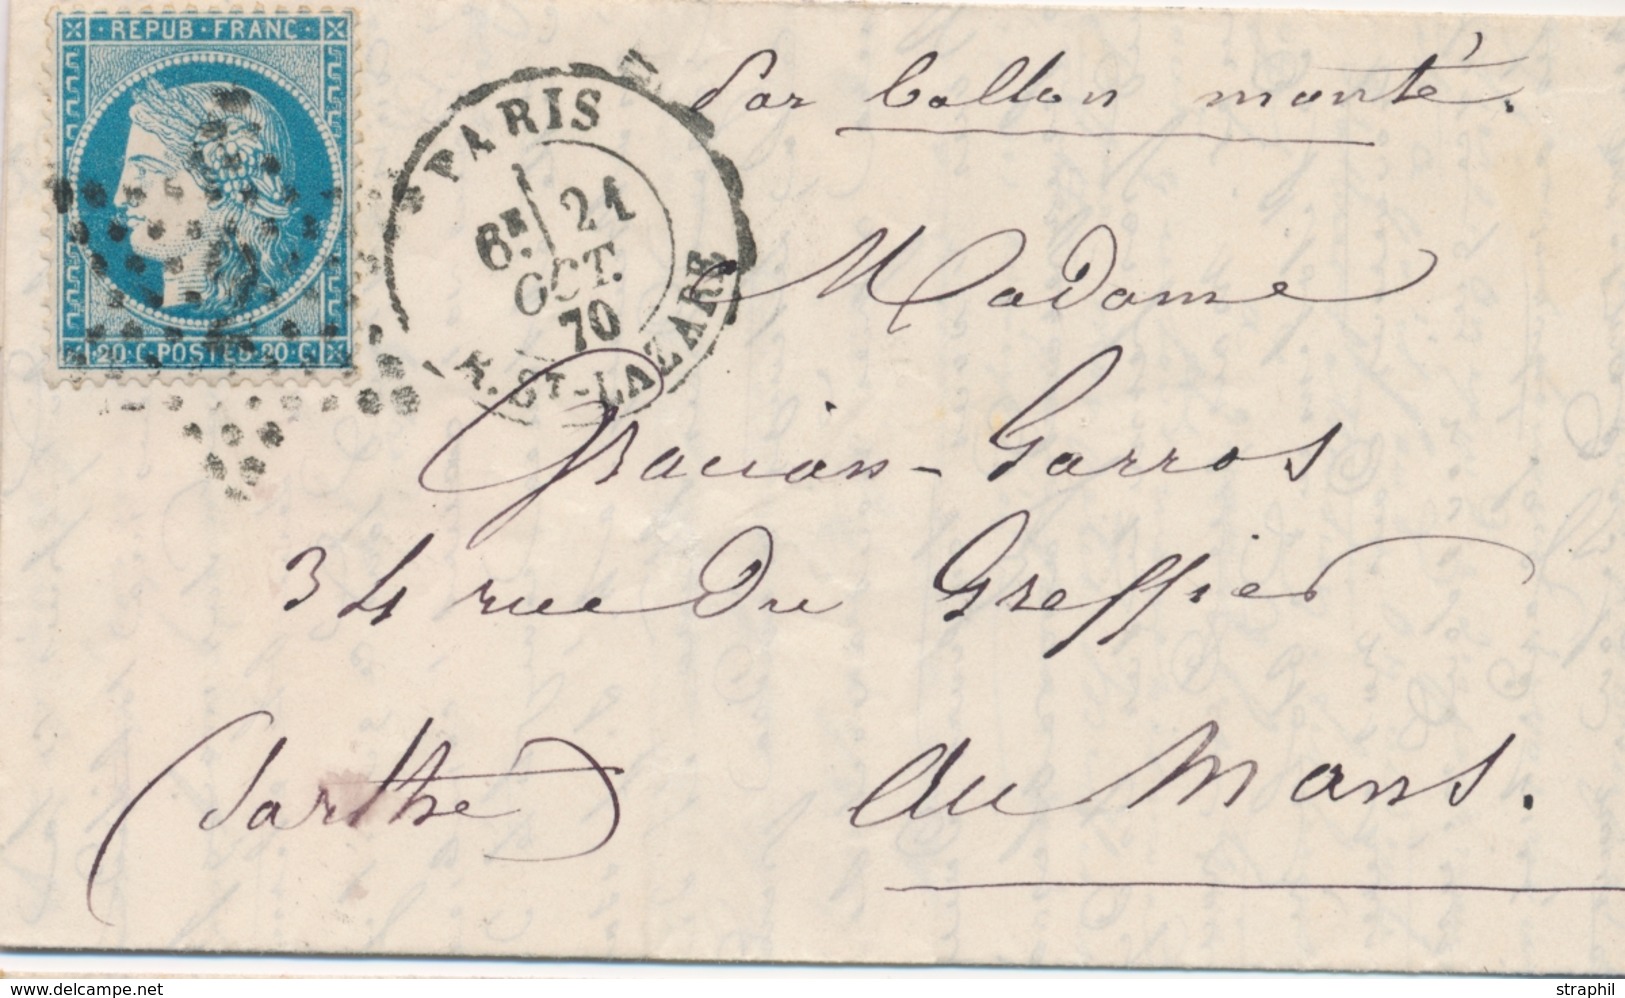 REPUB · FRANC ·
20 C. POSTES 20 C.
PARIS
6E 21
OCT.
70
R. ST-LAZARE
Par ballon monté.
Madame
Gracian-Garros
34 rue du Greffier
au Mans.
(Sarthe)
www.delcampe.net
straphil